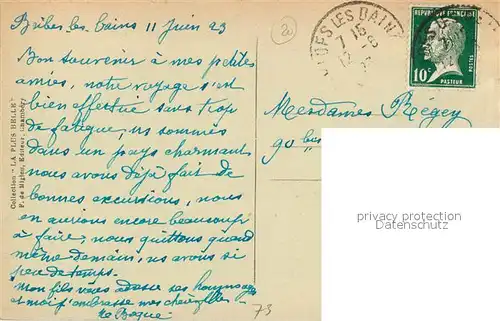 Brides les bains 11 juin 23
Bon souvenir à mes petites
amies, notre voyage s'est
bien effectué sans trop
de fatigue, ns sommes
dans un pays charmant
nous avons déjà fait de
bonnes excursions, nous
en aurions encore beaucoup
à faire, nous quittons quand
même demain, ns avons si
peu de temps.
mon fils vous adresse ses hommages
et moi j'embrasse mes
73
Collection "LA PLUS BELLE"
20
LES BAINS
7 15
12
REPUBLIQUE FRANÇAISE
POSTES
10c
PASTEUR
Mesdames Régey
90 bis
privacy protection
Datenschutz